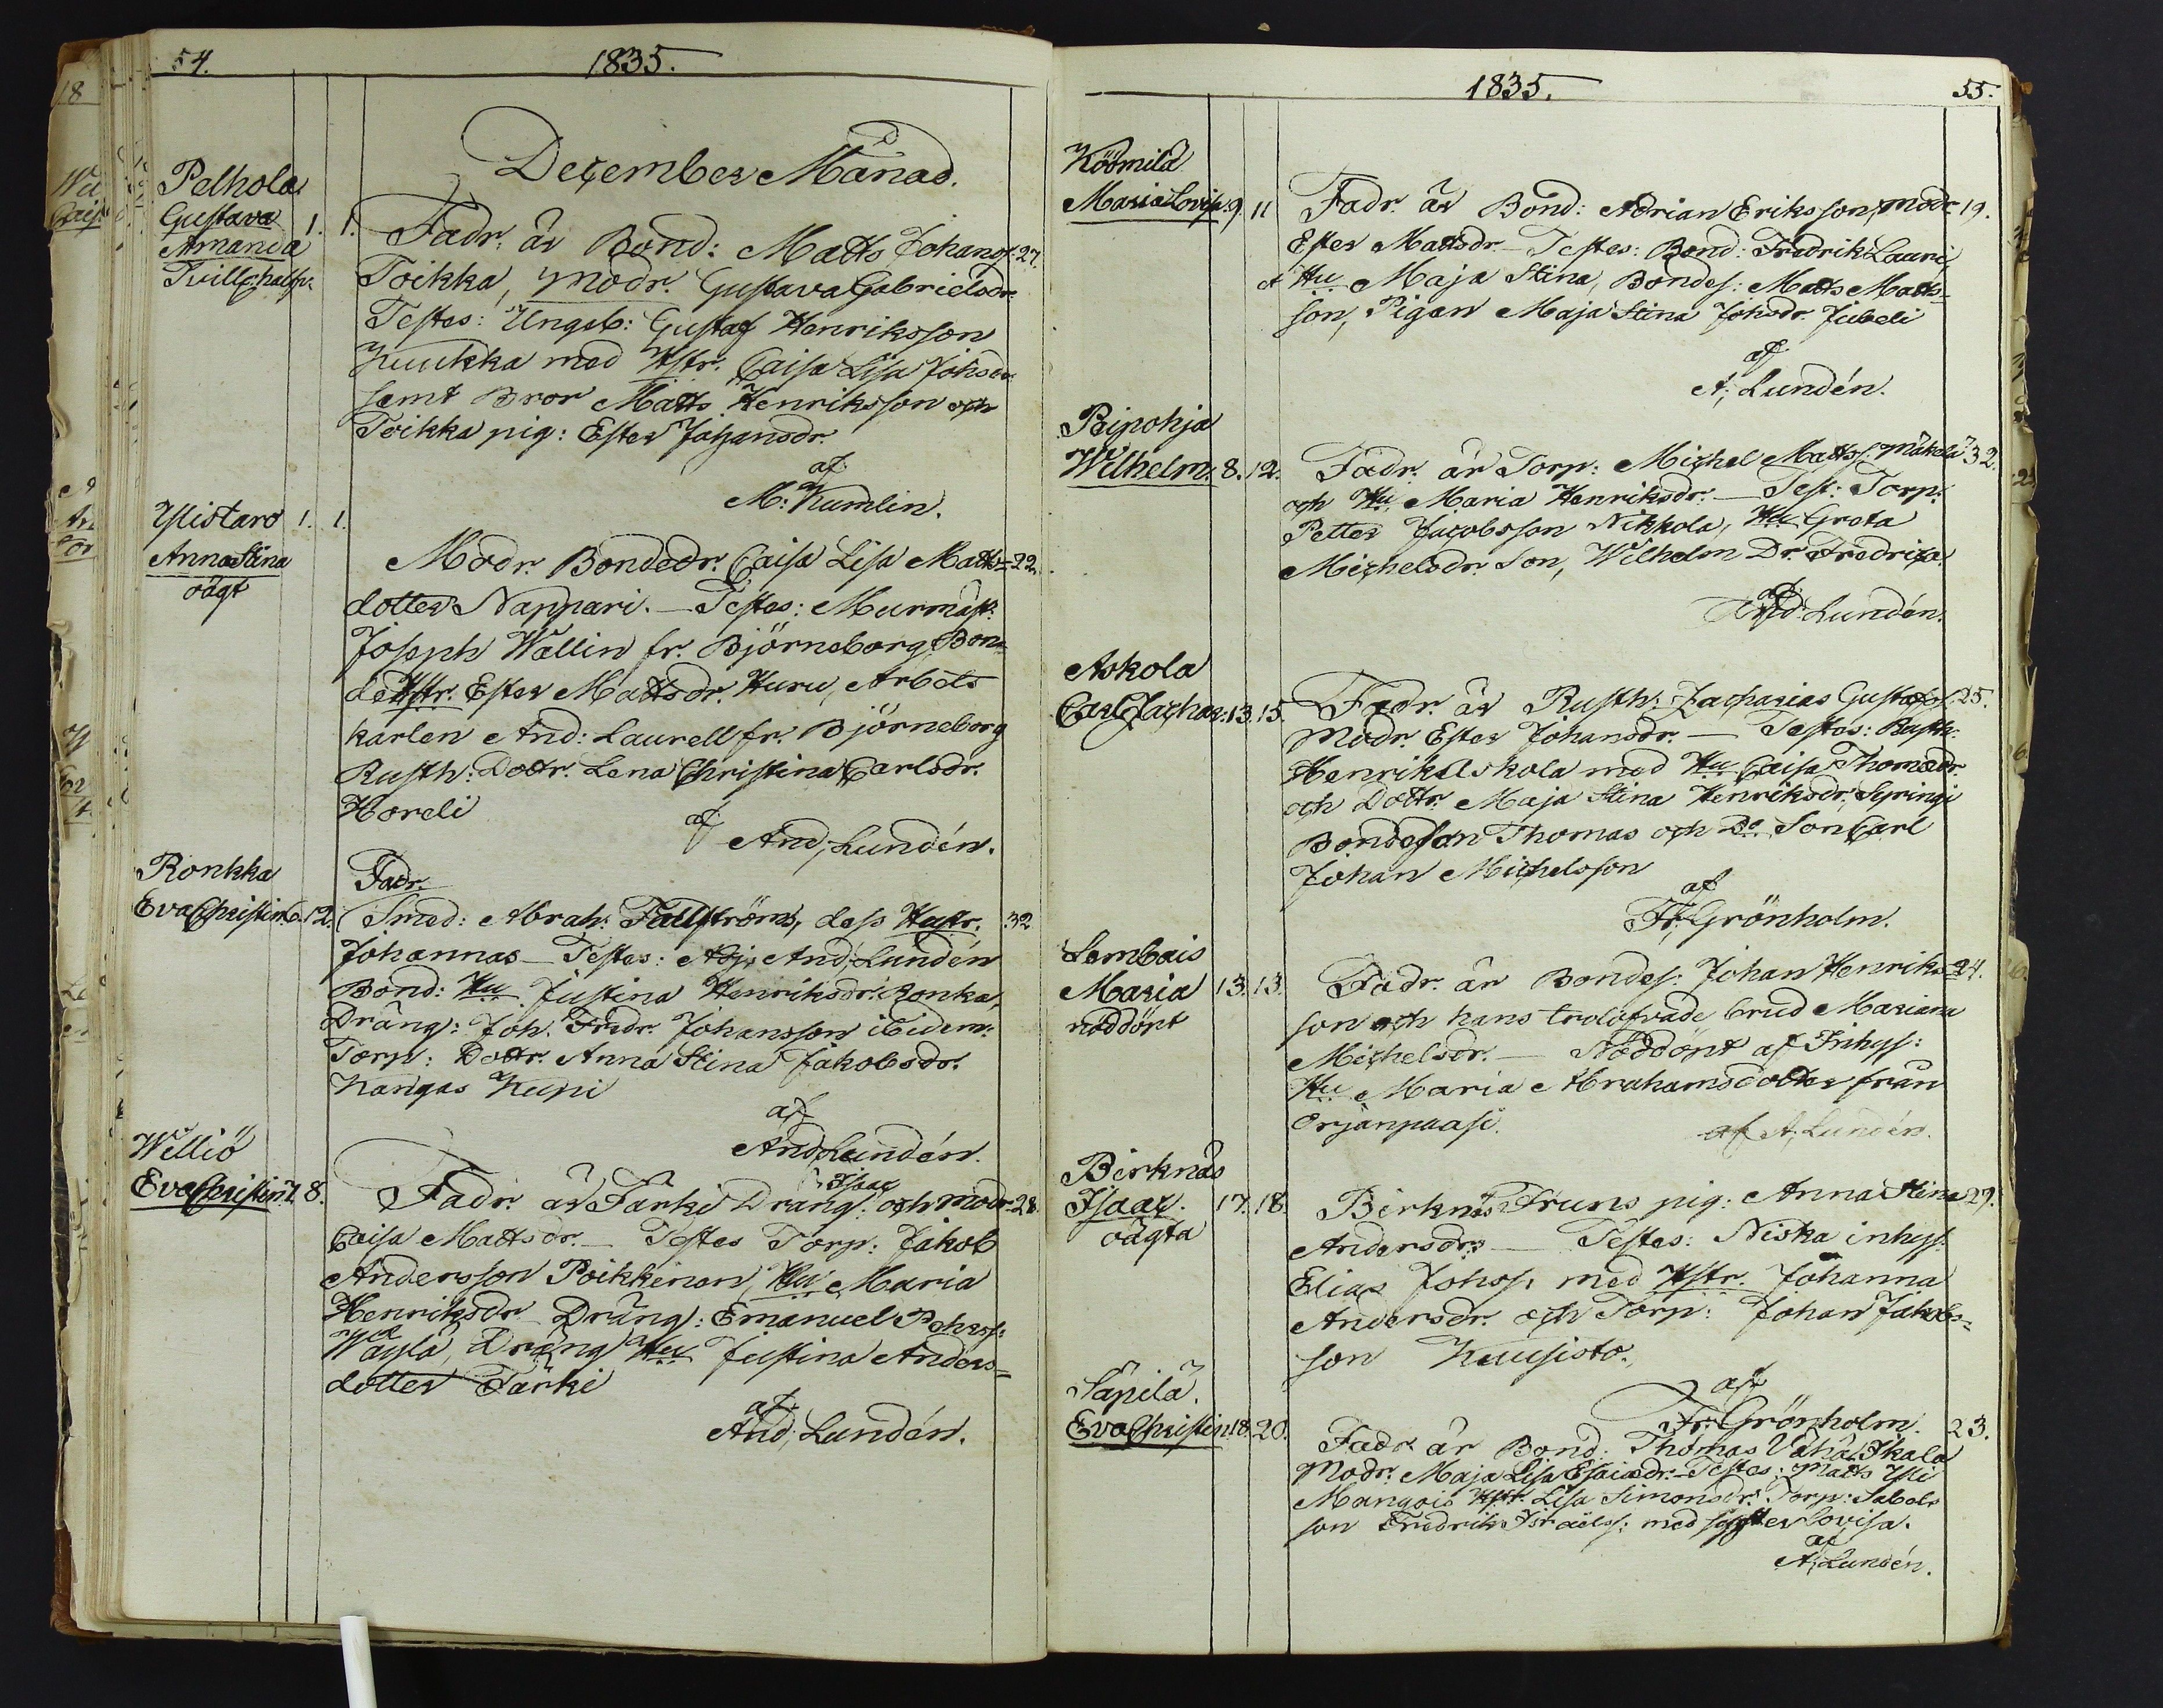 54.
1835.
December Månad.
Pelhola
Gustava
Amanda
Tvillg. halfv.
1. 1.
Fadr. är Bond: Matts Johanss. 27.
Toikka, Modr. Gustava Gabrielsdr.
Testes: Ungsb: Gustaf Henriksson
Kuukka med Hstr. Caisa Lisa Johsdr
samt Bror Matts Henriksson och
Toikka pig: Ester Johansdr.
af
M: Kumlin.
Ylistaro 1. 1.
Anna Stina
oägt
Modr. Bondedr. Caisa Lisa Matts= 22.
dotter Nappari. — Testes: Murmäst:
Joseph Wallin fr. Björneborg, Bon=
de Hstr. Ester Mattsdr. Huru, Arbets
karlen And: Laurell fr. Björneborg
Rusth: Dottr. Lena Christina Carlsdr.
Horeli
af
And; Lundén.
Ronkka
Eva Christin. 6. 12.
Fadr.
Smed: Abrah: Fallström, dess Hustr. 32
Johannas — Testes: Adj: And; Lundén
Bond: Hu Justina Henriksdr. Ronka,
Dräng: Joh. Fredr. Johansson ibidem:
Torp: Dottr. Anna Stina Jakobsdr.
Kangas Kupi
af
And; Lundén.
Williö
Eva Christin. 1. 8.
Isaac
Fadr. är Järki Dräng: och Modr. 28.
Caisa Mattsdr. — Testes Torp: Jakob
Andersson Poikkinen, Hu Maria
Henriksdr. Dräng: Emanuel
Dräng Hu Justina Anders=
dotter Järki
af
And; Lundén.
1835.
55.
Köömilä
Maria Lovis. 9. 11
Fadr. är Bond: Adrian Eriksson, Modr. 19.
Ester Mattsdr. — Testes: Bond: Fredrik Lauri,
et Hu Maja Stina, Bondes: Matts Matts=
son, Pigan Maja Stina Johsdr. Jubeli
af
A; Lundén.
Peipohja
Wilhelm. 8. 12.
Fadr. är Torp: Michel Matts: Mäkelä 32.
och Hu Maria Henriksdr. — Test: Torp:
Petter Jacobsson Nikkola, Hu Greta
Michelsdr. Son, Wilhelm Dr. Fredrica.
af
And Lundén.
Askola
Carl Zachar. 13. 15.
Fadr. är Rusth: Zacharias Gustafs. 25.
Modr. Ester Johansdr. — Testes: Rusth:
Henrik Alskola med Hu Caisa Thomadr.
och Dottr. Maja Stina Henriksdr. Syringi
Bondeson Thomas och Do Son Carl
Johan Michelsson
af
Fr; Grönholm.
Lembais
Maria 13. 13.
nöddöpt
Fadr. är Bondes: Johan Henriks= 24.
son och hans trolofvade brud Mariana
Michelsdr. — Nöddöpt af Inhys:
Hu Maria Abrahamsdotter från
Orjanpaasi.
af A; Lundén.
Birknäs
Isaac. 17. 18.
oägta
Birknäs Fruns pig: Anna Stina 29.
Andersdr. — Testes: Niska inhys:
Elias Johss. med Hstr. Johanna
Andersdr. och Torp: Johan Jakobs=
son Kuusisto.
af
Fr; Grönholm.
Säpilä.
Eva Christin. 18. 20.
Fadr. är Bond: Thomas Vähä Ikala 23.
Modr. Maja Lisa Esaiadr. — Testes: Matts Yli
Mangois Hstr. Lisa Simonsdr. Torp: Sabels
son Fredrik Israëls: med syster Lovisa.
af
A; Lundén.